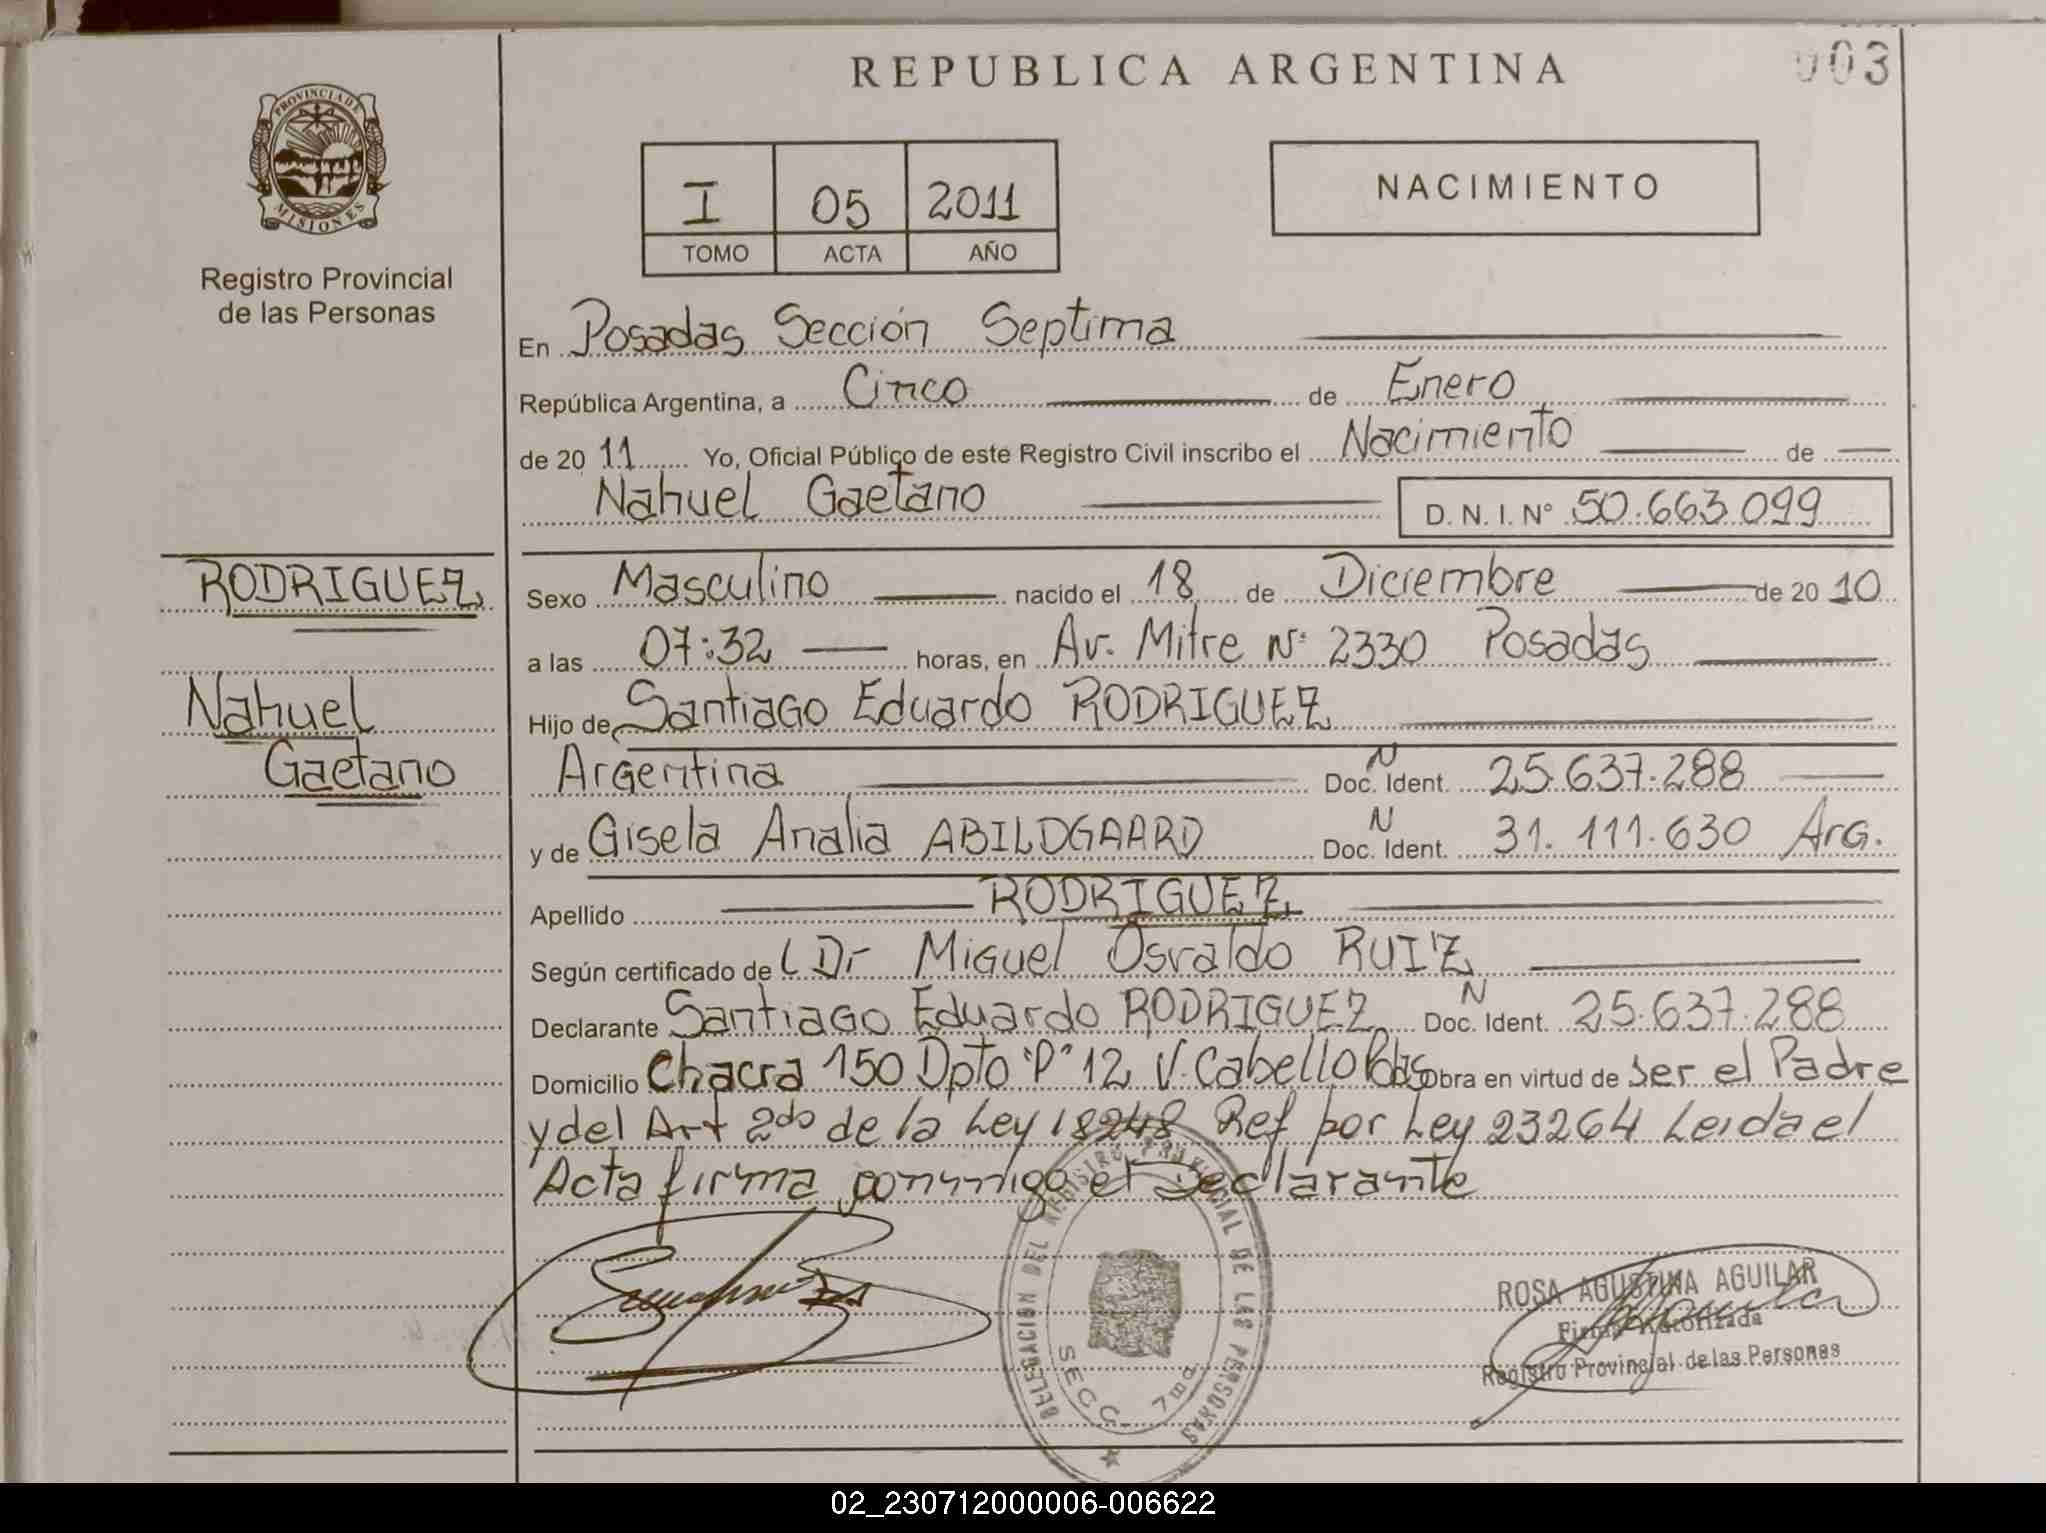 REPUBLICA ARGENTINA
003
PROVINCIA DE
MISIONES
Registro Provincial
de las Personas
I 05 2011
TOMO ACTA AÑO
NACIMIENTO
En Posadas Sección Septima
República Argentina, a Cinco de Enero
de 2011 Yo, Oficial Público de este Registro Civil inscribo el Nacimiento de
Nahuel Gaetano D. N. I. N° 50.663.099
RODRIGUEZ
Nahuel
Gaetano
Sexo Masculino nacido el 18 de Diciembre de 2010
a las 07:32 horas, en Av. Mitre N° 2330 Posadas
Hijo de Santiago Eduardo RODRIGUEZ
Argentina Doc. N Ident. 25.637.288
y de Gisela Analia ABILDGAARD Doc. N Ident. 31.111.630 Arg.
Apellido RODRIGUEZ
Según certificado de l Dr Miguel Osvaldo RUIZ
Declarante Santiago Eduardo RODRIGUEZ Doc. N Ident. 25.637.288
Domicilio Chacra 150 Dpto "P" 12 V. Cabello Pdas Obra en virtud de ser el Padre
y del Art 2do de la Ley 18248 Ref por Ley 23264 Leida el
Acta firma conmigo el Declarante
DELEGACION DEL REGISTRO PROVINCIAL DE LAS PERSONAS
SECC. 7ma
ROSA AGUSTINA AGUILAR
Firma Autorizada
Registro Provincial de las Personas
02_230712000006-006622